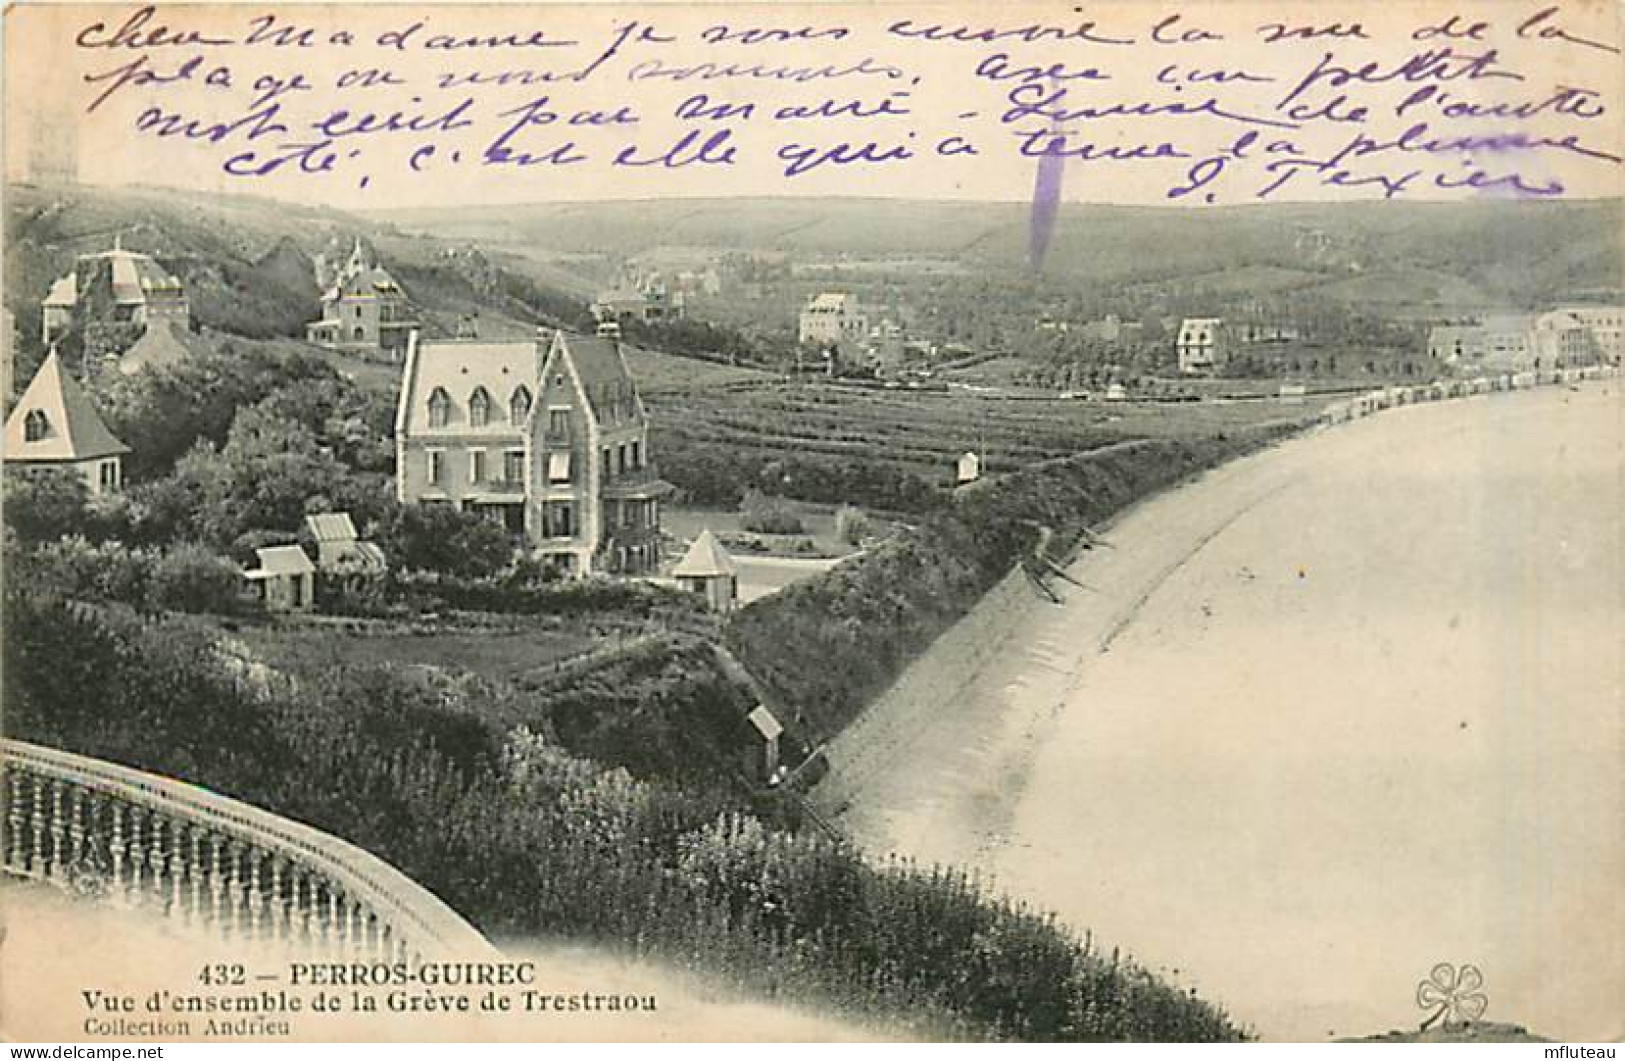 cher Madame je vous envoie la vue de la
plage ou nous sommes. Avec un petit
mot ecrit par Marré - Louise de l'autre
coté, c'est elle qui a tenu la plume
J. Texier
432 — PERROS-GUIREC
Vue d'ensemble de la Grève de Trestraou
Collection Andrieu
mfluteau